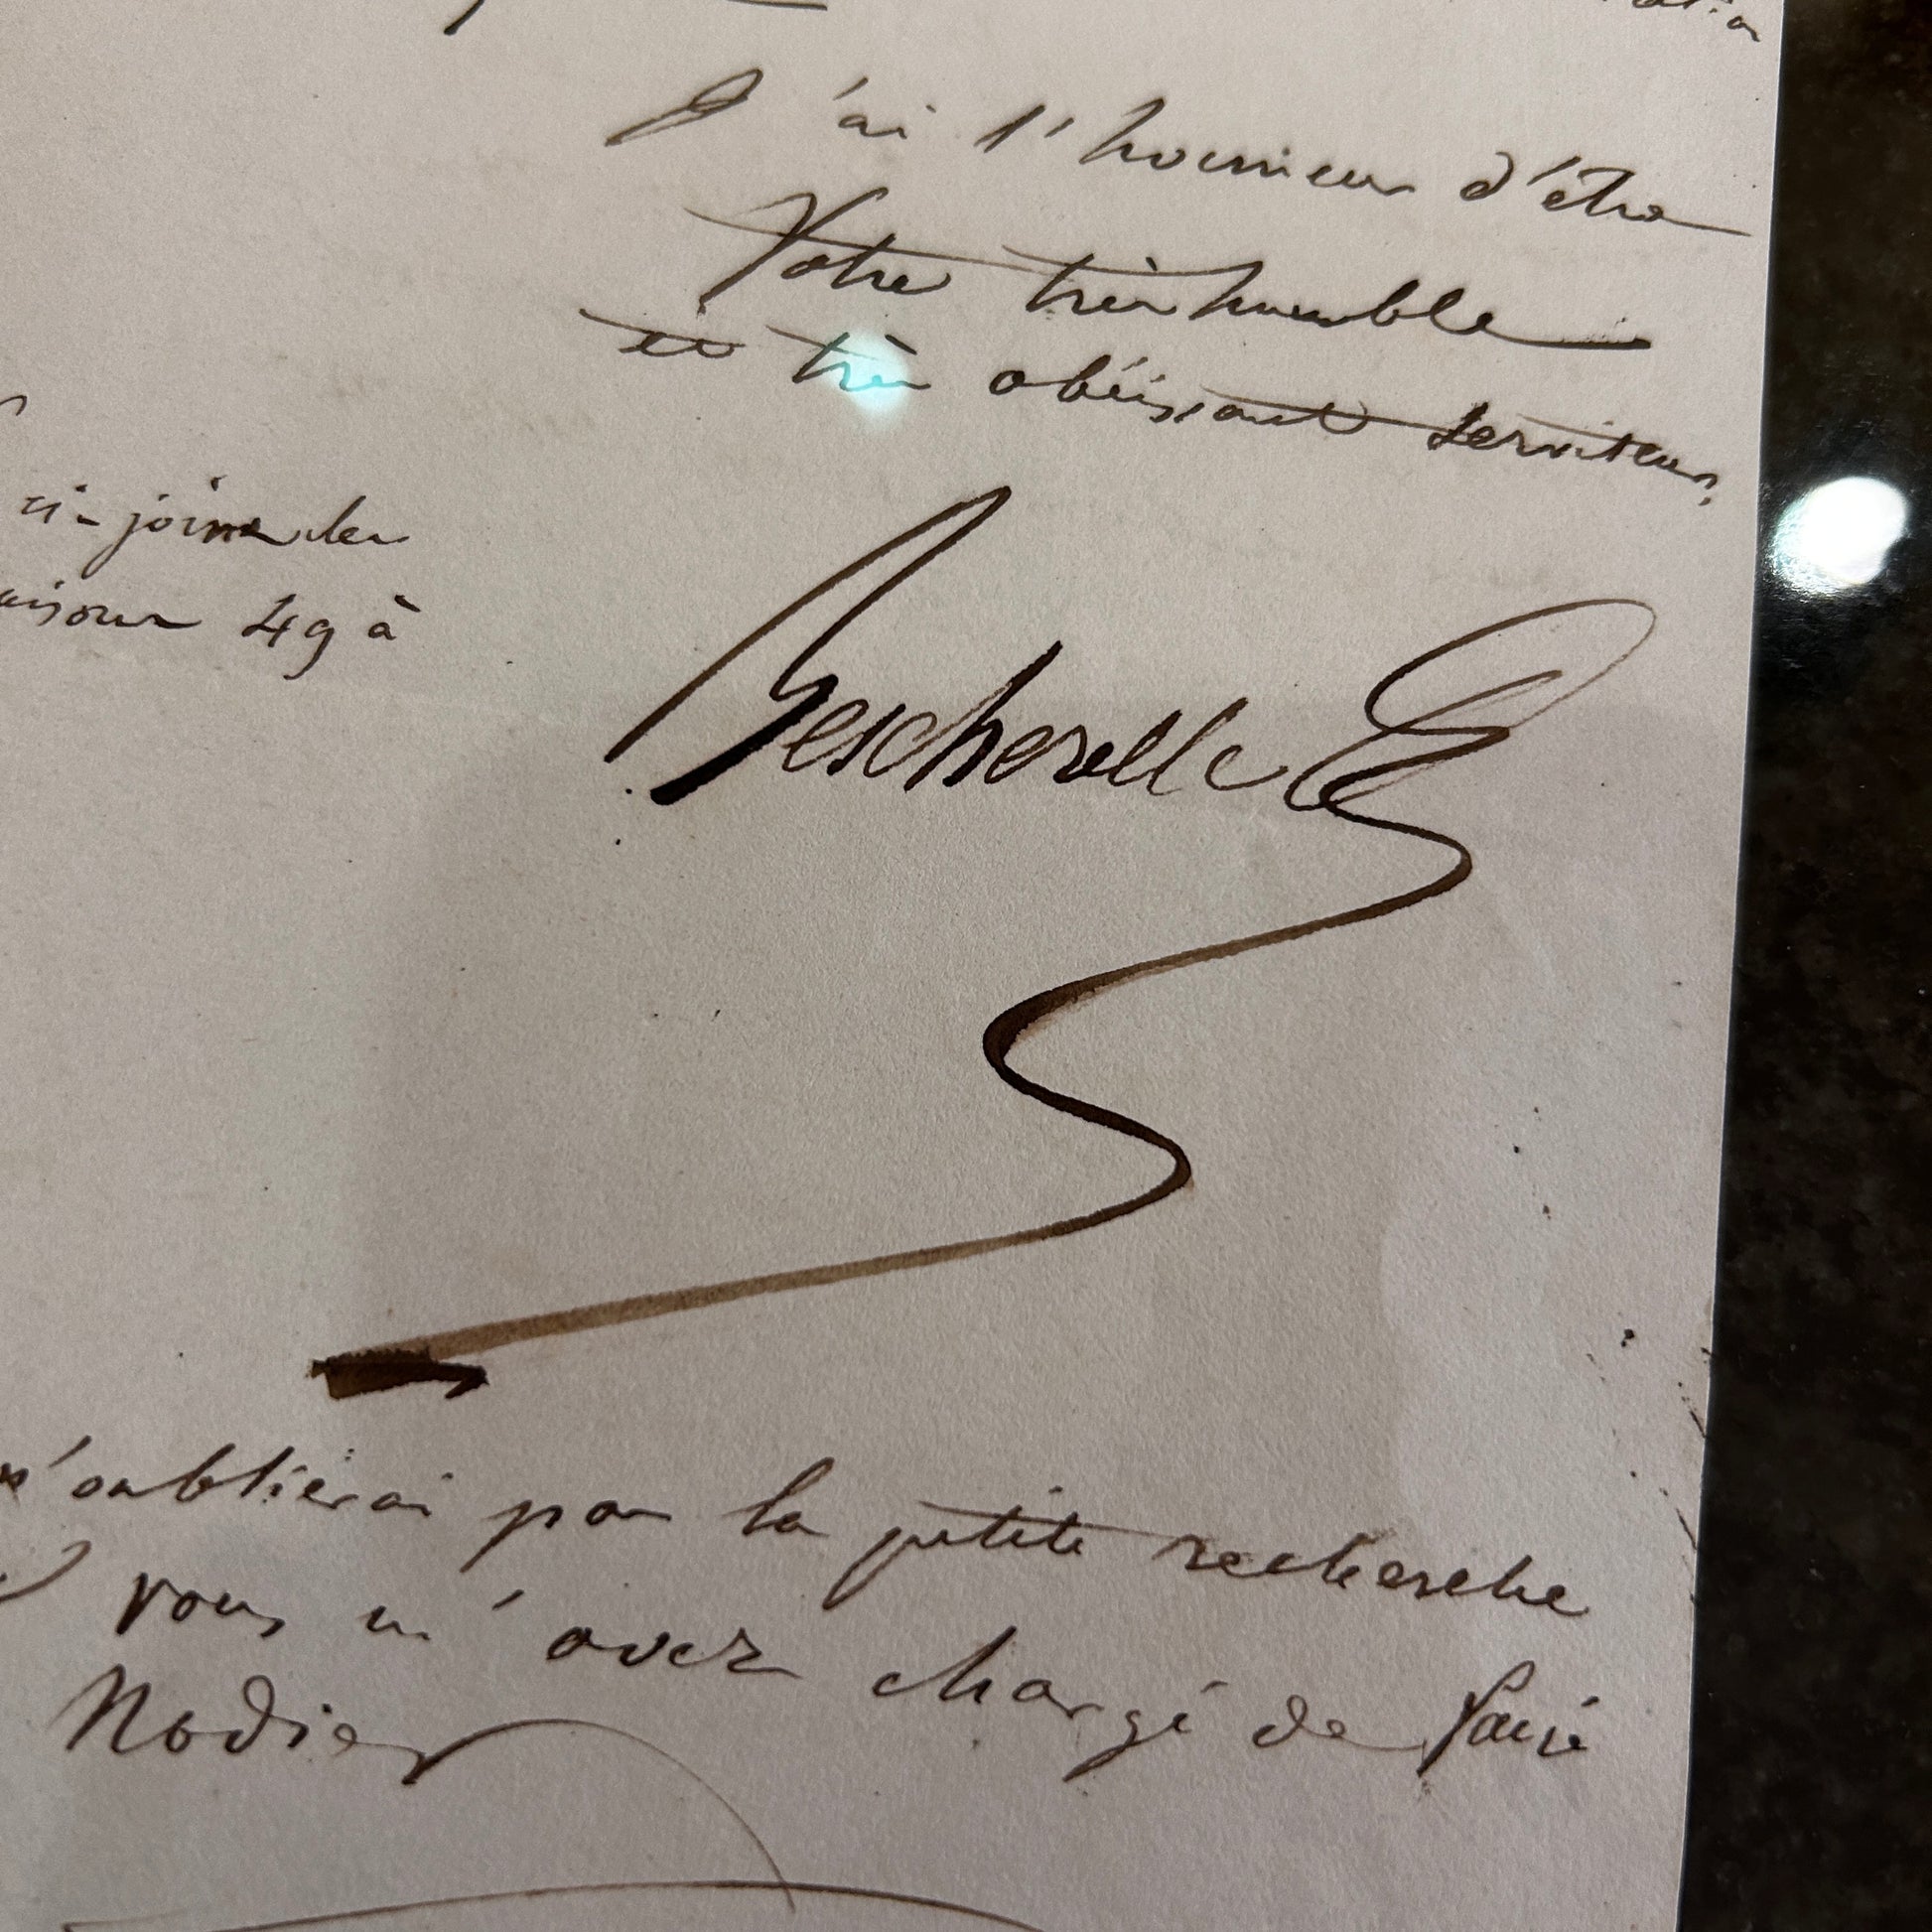 J'ai l'honneur d'être
Votre très humble
et très obéissant serviteur,
ci-joint les
49 à
Bescherelle
n'oublierai pas la petite recherche
vous m'avez chargé de faire
Nodier